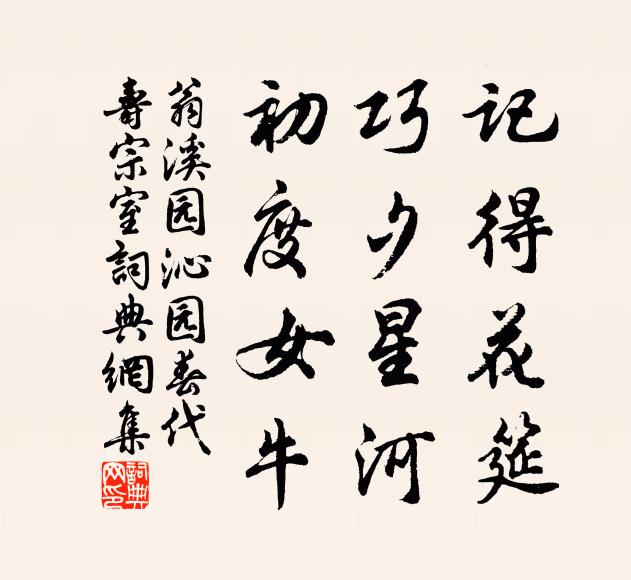 记得花筵
巧夕星河
初度女牛
翁溪园沁园春代
寿宗室詞典網集
詞典网印